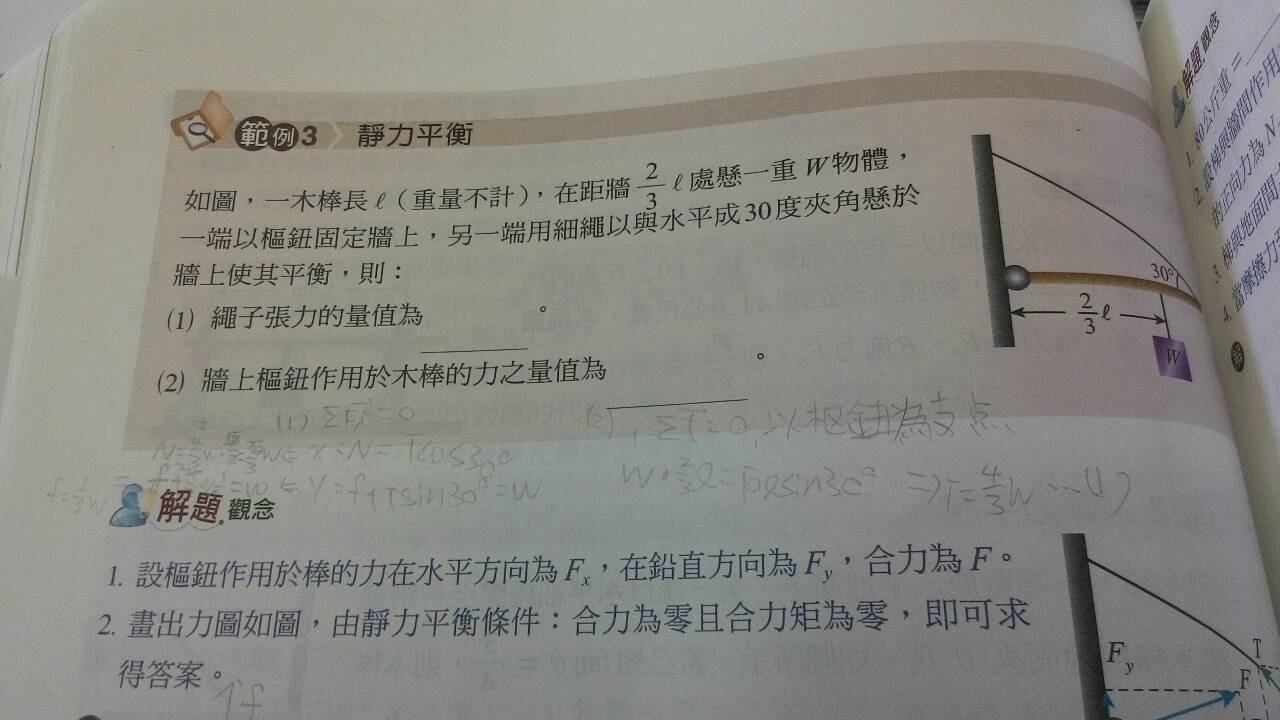 範例3 靜力平衡
如圖，一木棒長ℓ（重量不計），在距牆 2/3 ℓ處懸一重W物體，
一端以樞鈕固定牆上，另一端用細繩以與水平成30度夾角懸於
牆上使其平衡，則：
(1) 繩子張力的量值為＿＿＿。
(2) 牆上樞鈕作用於木棒的力之量值為＿＿＿。
30°
2/3 ℓ
W
(1) ΣF=0
Στ=0，以樞鈕為支点
N=Tcos30°
Y=f+Tsin30°=W
W·2/3ℓ=Tℓsin30° ⇒T=4/3W
f=1/3W
解題觀念
1. 設樞鈕作用於棒的力在水平方向為Fx，在鉛直方向為Fy，合力為F。
2. 畫出力圖如圖，由靜力平衡條件：合力為零且合力矩為零，即可求
得答案。
Fy
T
F
解題觀念
1. 80公斤重=
2. 設梯與牆間作用
的正向力為N
3. 梯與地面間
4. 當摩擦力